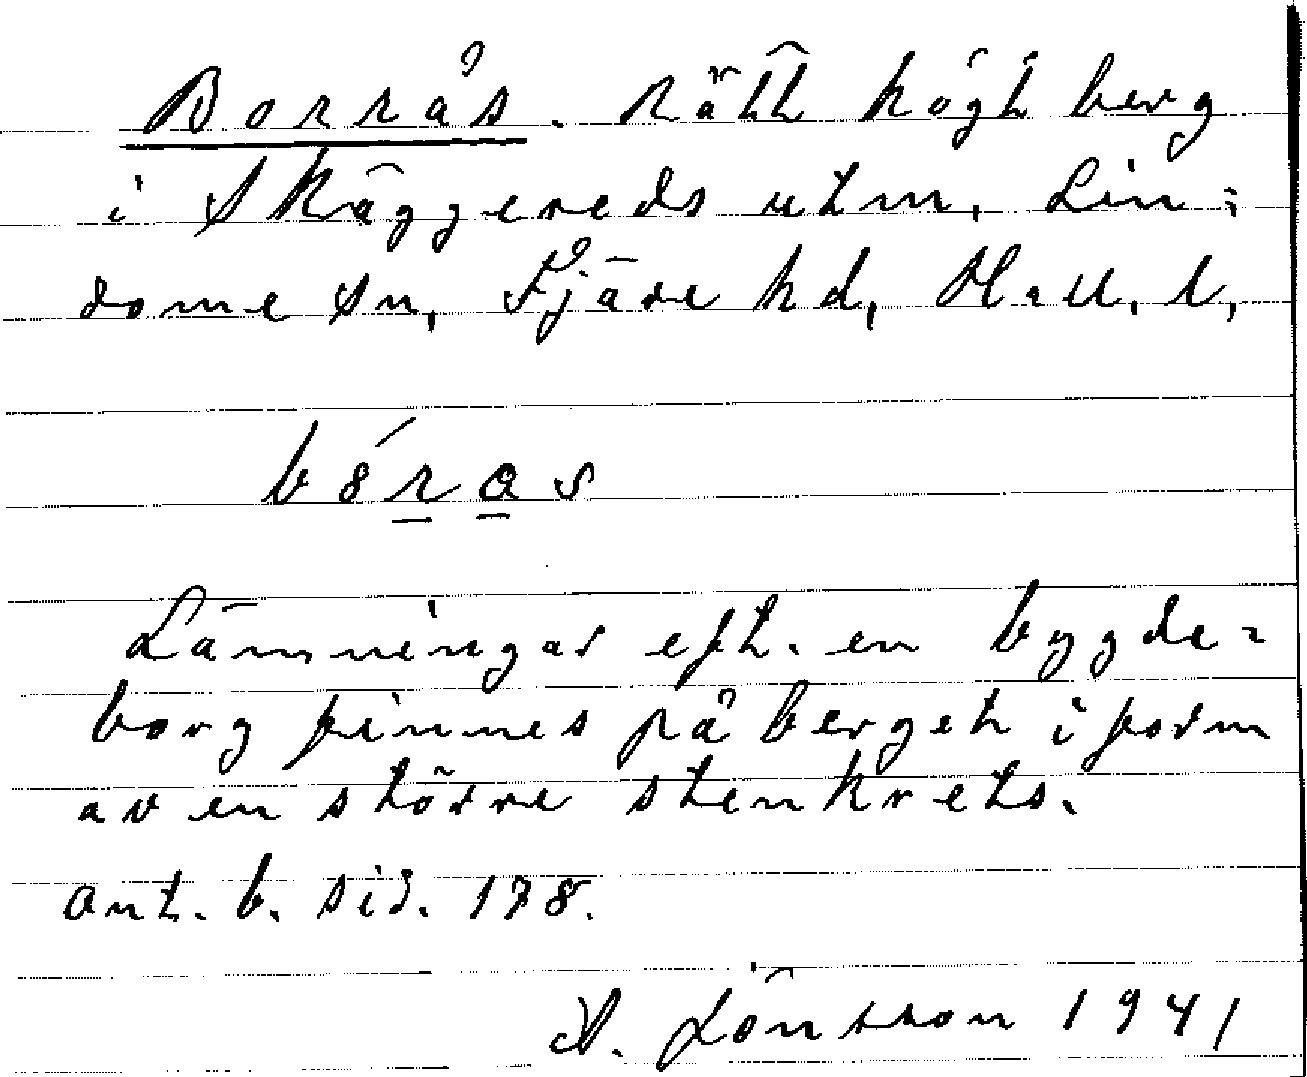 Borrås. Rätt högt berg
i Skäggereds utm. Lin-
dome sn, Fjäre hd, Hall. l,
b8́ras
Lämningar eft. en bygde-
borg finnes på berget i form
av en större stenkrets.
Ant. b. sid. 178.
A. Jönsson 1941